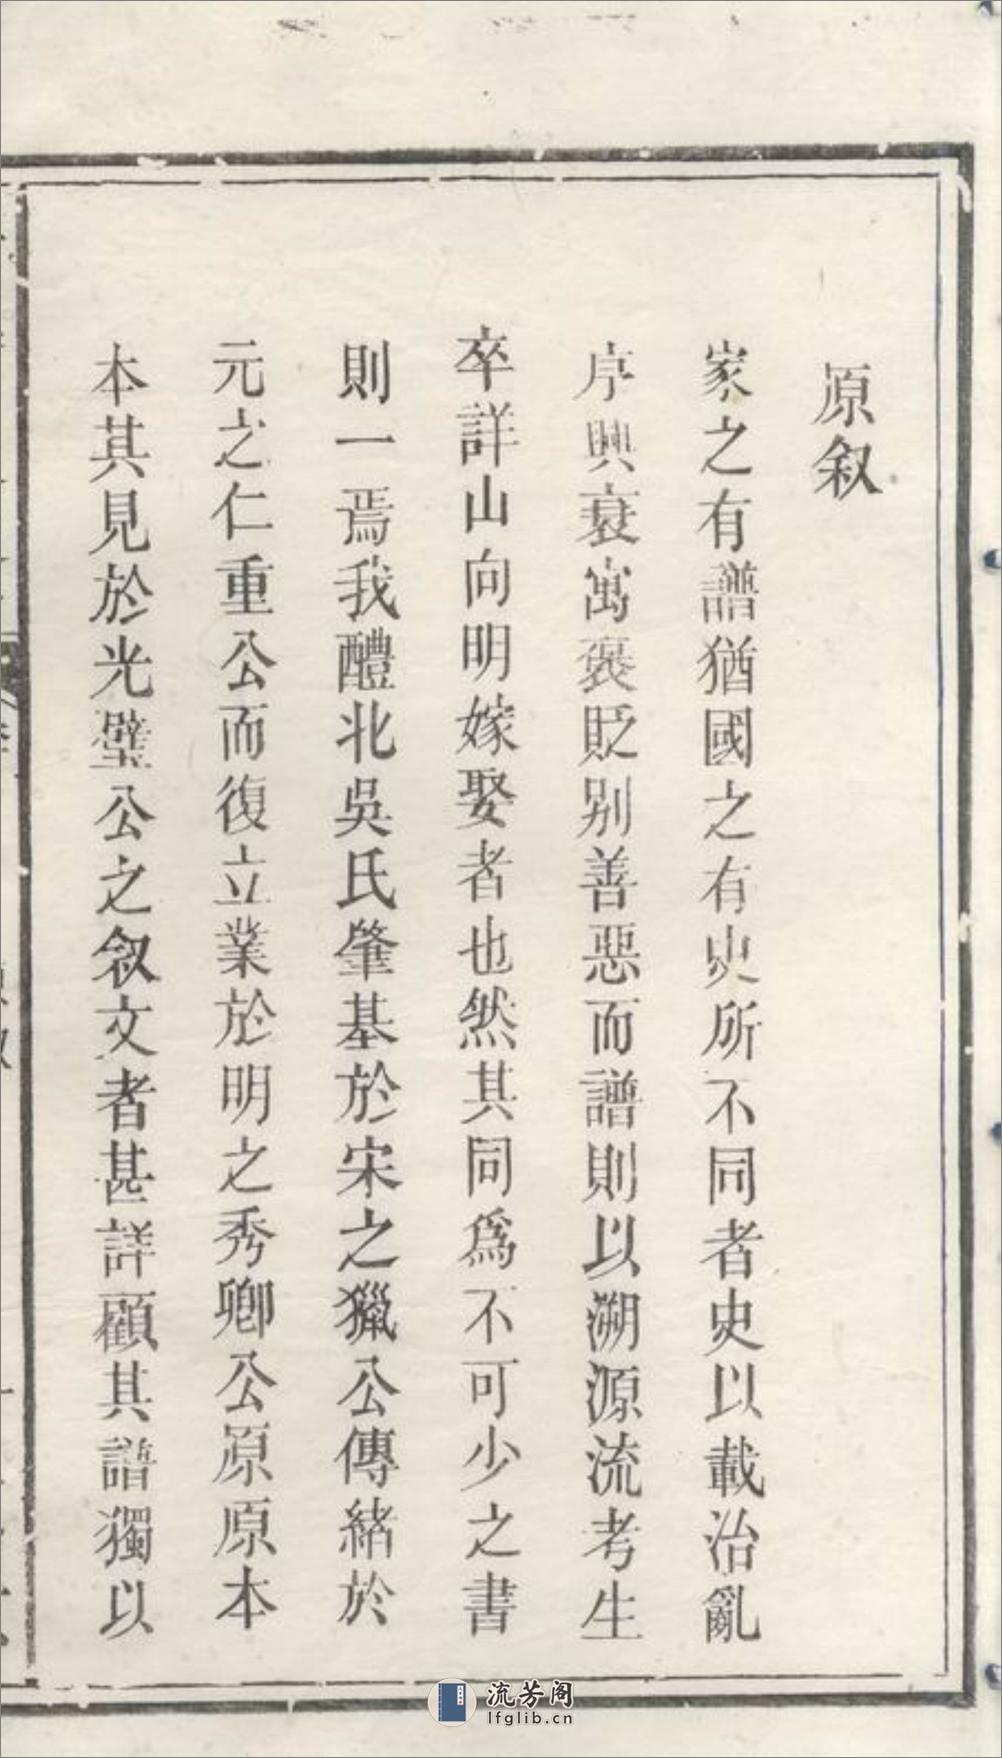 原叙
家之有譜猶國之有史所不同者史以載治亂
序興衰寓褒貶别善惡而譜則以溯源流考生
卒詳山向明嫁娶者也然其同爲不可少之書
則一焉我醴北吳氏肇基於宋之獵公傳緒於
元之仁重公而復立業於明之秀卿公原原本
本其見於光璧公之叙文者甚詳顧其譜獨以
流芳阁
lfglib.cn